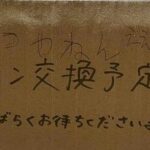 コやねん
ン交換予定
ばらくお待ちください